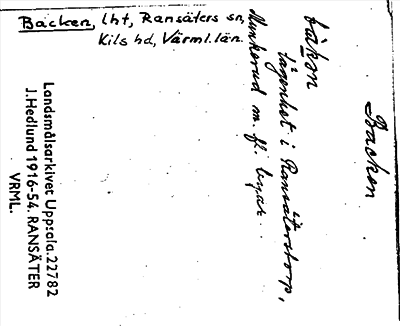 Backen, lht, Ransäters sn,
Kils hd, Värml. län.
Backen
båkɘn
lägenhet i Ransäterstorp,
Munkerud m. fl. byar.
Landsmålsarkivet Uppsala. 22782
J. Hedlund 1916-54. RANSÄTER
VRML.